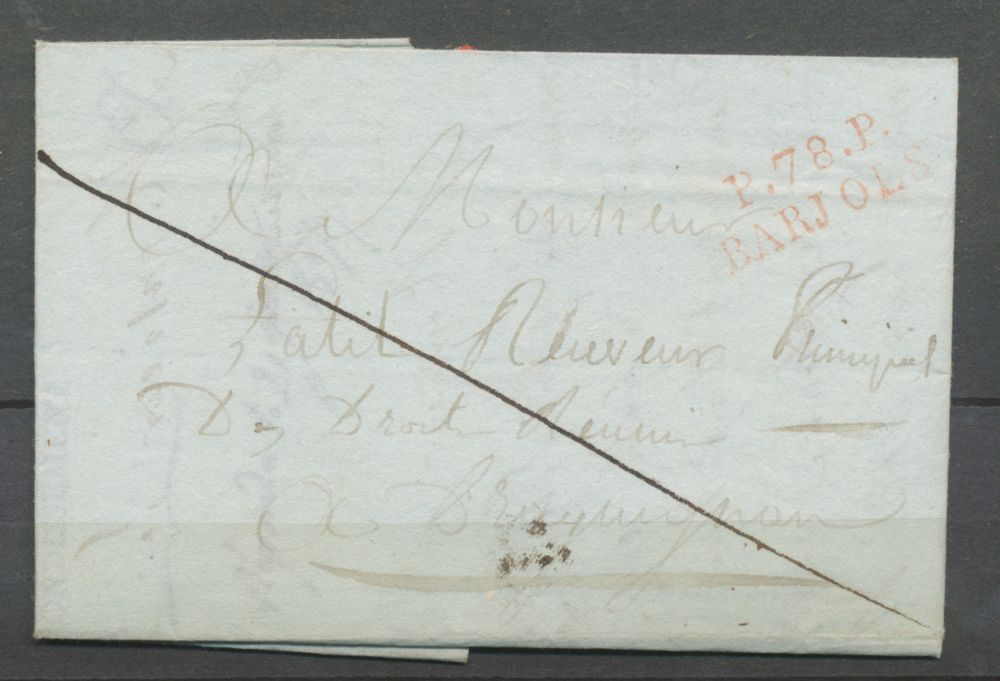 P.78.P.
BARJOLS
A Monsieur
Receveur Principal
Des Droits Réunis
a Draguignan